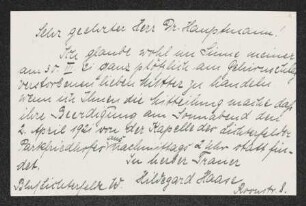 Sehr geehrter Herr Dr. Hauptmann!
Ich glaube wohl im Sinne meiner
am 30. III. ganz plötzlich am Gehirnschlag
verstorbenen lieben Mutter zu handeln
wenn ich Ihnen die Mitteilung mache daß
ihre Beerdigung am Sonnabend den
2. April 1921 von der Kapelle des Lichterfelder
Parkfriedhofes aus Nachmittags 2 Uhr statt fin-
det.
In herber Trauer
Hildegard Haase
Bln/Lichterfelde W. Roonstr. 8.